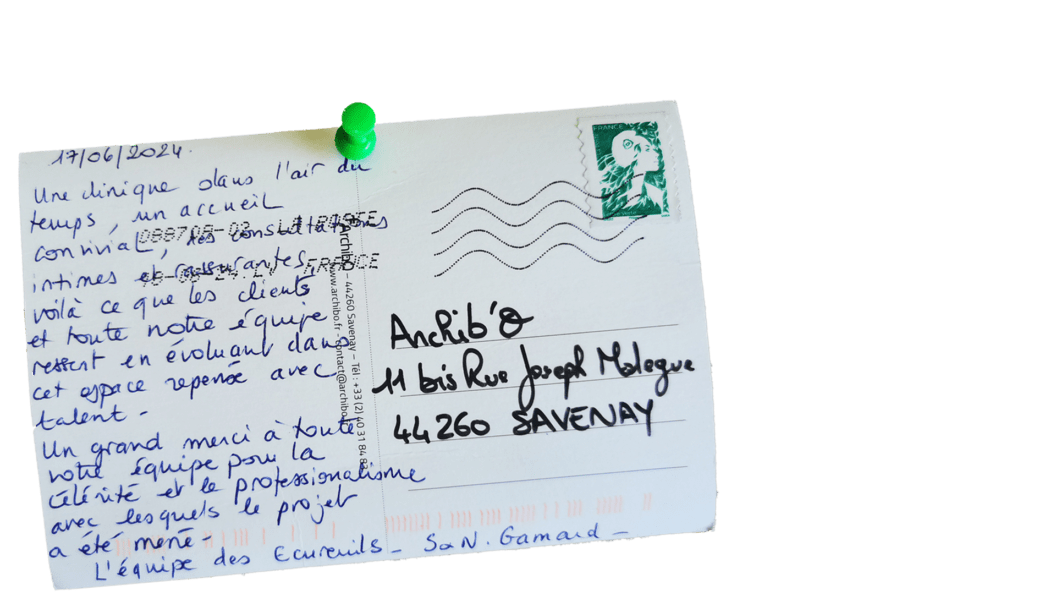 17/06/2024.
Une clinique dans l'air du
temps, un accueil
convivial, des consultations
intimes et rassurantes,
voilà ce que les clients
et toute notre équipe
ressent en évoluant dans
cet espace repensé avec
talent -
Un grand merci à toute
votre équipe pour la
célérité et le professionalisme
avec lesquels le projet
a été mené -
L'équipe des Ecureuils - S&N. Gamard -
LA POSTE
FRANCE
Archibo - 44260 Savenay - Tél : +33 (2) 40 31 84 83
www.archibo.fr - contact@archibo.fr
FRANCE
Archib'O
11 bis Rue Joseph Malegue
44260 SAVENAY